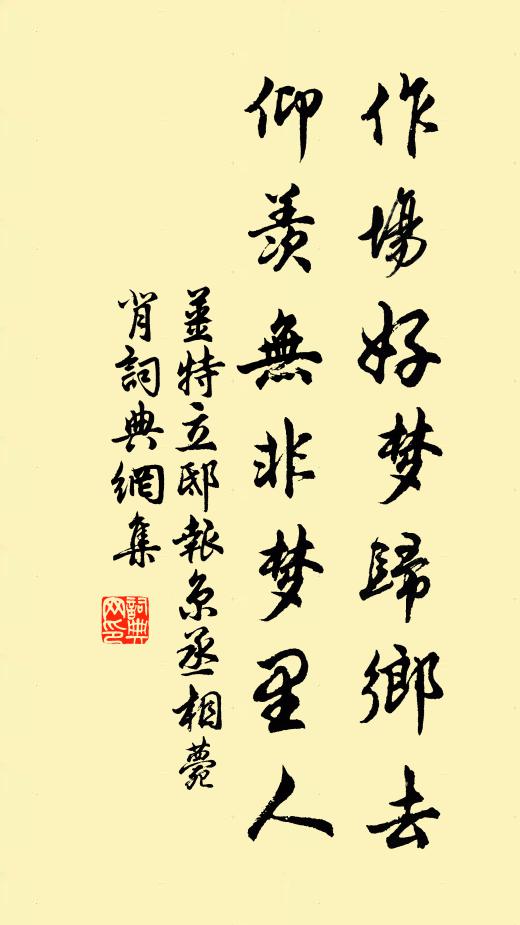 作場好梦歸鄉去
仰羨無非梦里人
薑特立邸報京丞相薨
肖詞典網集
詞典网印